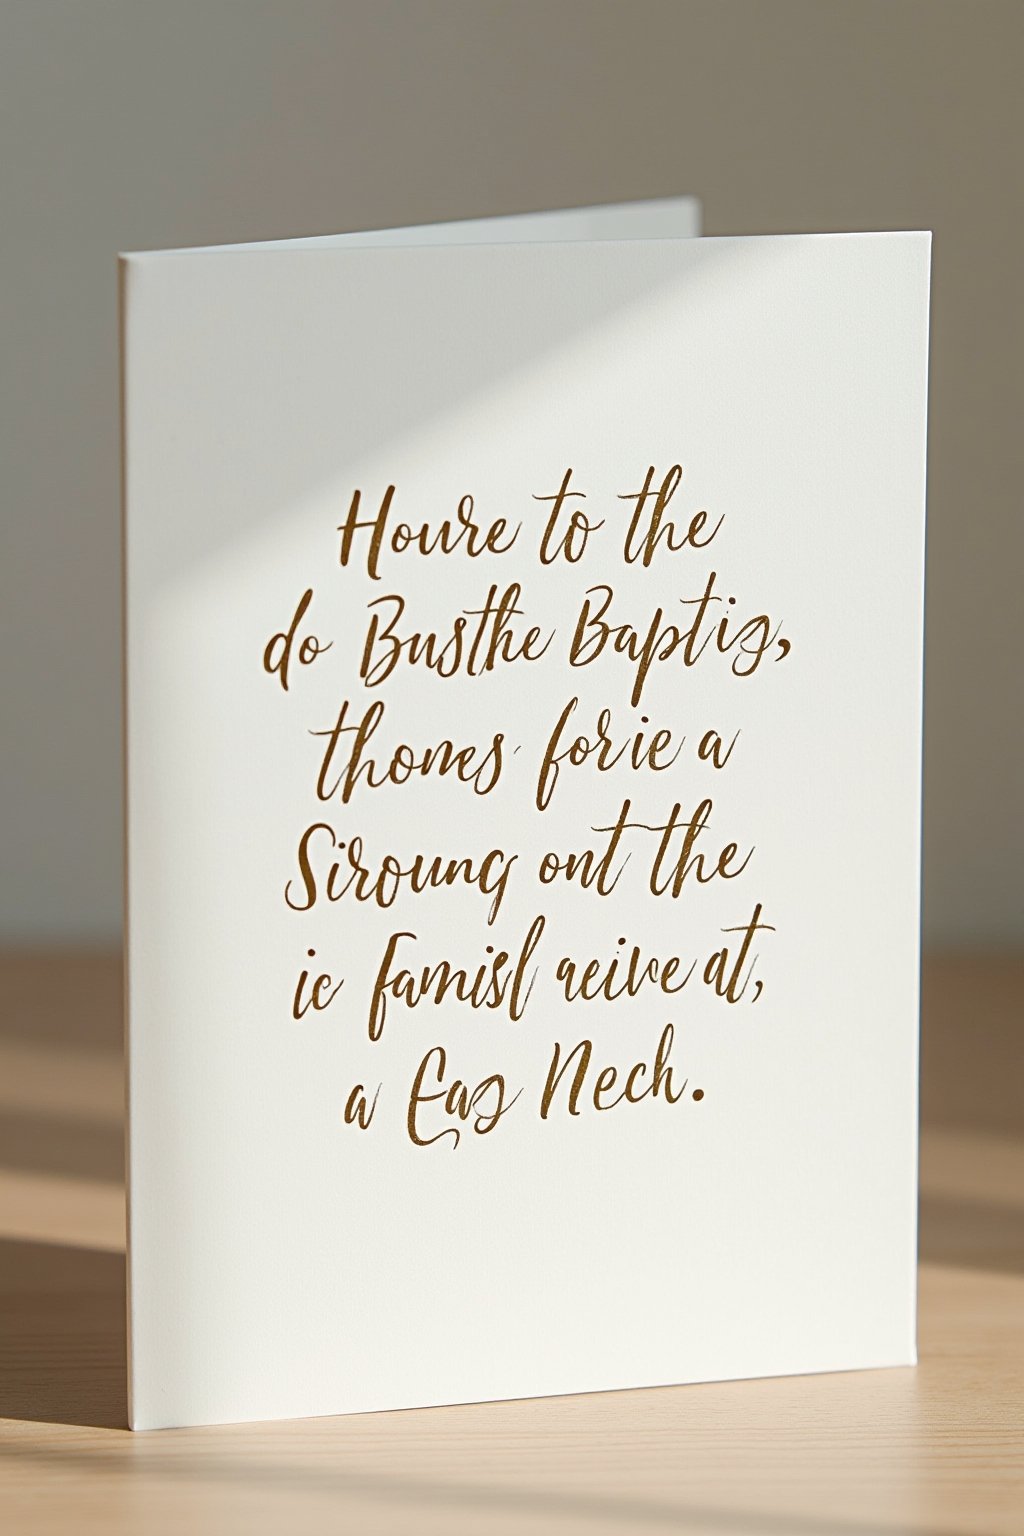 Houre to the
do Busthe Baptig,
thomes forie a
Siroung ont the
ic Famisl aeive at,
a Eag Nech.